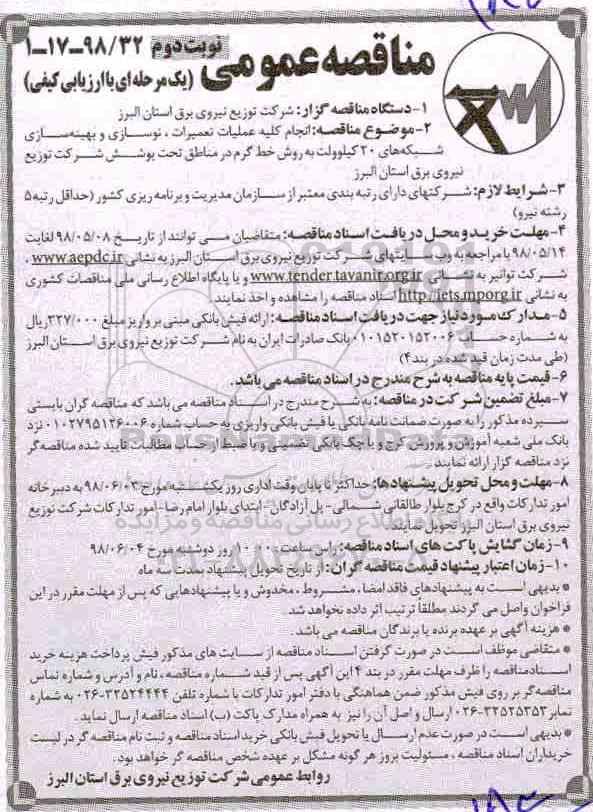 مناقصه عمومی نوبت دوم ۹۸/۳۲-۱۷-۱
(یک مرحله‌ای با ارزیابی کیفی)
۱-دستگاه مناقصه گزار: شرکت توزیع نیروی برق استان البرز
۲-موضوع مناقصه: انجام کلیه عملیات تعمیرات ، نوسازی و بهینه‌سازی
شبکه‌های ۲۰ کیلوولت به روش خط گرم در مناطق تحت پوشش شرکت توزیع
نیروی برق استان البرز
۳-شرایط لازم: شرکتهای دارای رتبه بندی معتبر از سازمان مدیریت و برنامه ریزی کشور (حداقل رتبه ۵
رشته نیرو)
۴-مهلت خرید و محل دریافت اسناد مناقصه: متقاضیان می توانند از تاریخ ۹۸/۰۵/۰۸ لغایت
۹۸/۰۵/۱۴ با مراجعه به وب سایتهای شرکت توزیع نیروی برق استان البرز به نشانی www.aepdc.ir ،
شرکت توانیر به نشانی www.tender.tavanir.org.ir و یا پایگاه اطلاع رسانی ملی مناقصات کشوری
به نشانی http://iets.mporg.ir اسناد مناقصه را مشاهده و اخذ نمایند.
۵-مدارک مورد نیاز جهت دریافت اسناد مناقصه: ارائه فیش بانکی مبنی بر واریز مبلغ ۳۲۷/۰۰۰ ریال
به شماره حساب ۰۱۰۱۵۲۰۱۵۲۰۰۶ بانک صادرات ایران به نام شرکت توزیع نیروی برق استان البرز
(طی مدت زمان قید شده در بند ۴)
۶-قیمت پایه مناقصه به شرح مندرج در اسناد مناقصه می باشد.
۷-مبلغ تضمین شرکت در مناقصه: به شرح مندرج در اسناد مناقصه می باشد که مناقصه گران بایستی
سپرده مذکور را به صورت ضمانت نامه بانکی یا فیش بانکی واریزی به حساب شماره ۰۱۰۲۷۹۵۱۳۶۰۰۶ نزد
بانک ملی شعبه آموزش و پرورش کرج و یا چک بانکی تضمینی و یا ضبط از حساب مطالبات تایید شده مناقصه‌گر
نزد مناقصه گزار ارائه نمایند.
۸-مهلت و محل تحویل پیشنهادها: حداکثر تا پایان وقت اداری روز یکشنبه مورخ ۹۸/۰۶/۰۳ به دبیرخانه
امور تدارکات واقع در کرج بلوار طالقانی شمالی- پل آزادگان- ابتدای بلوار امام رضا- امور تدارکات شرکت توزیع
نیروی برق استان البرز تحویل نمایند.
۹-زمان گشایش پاکت های اسناد مناقصه: راس ساعت ۱۰:۰۰ روز دوشنبه مورخ ۹۸/۰۶/۰۴
۱۰-زمان اعتبار پیشنهاد قیمت مناقصه گران: از تاریخ تحویل پیشنهاد بمدت سه ماه
* بدیهی است به پیشنهادهای فاقد امضا ، مشروط ، مخدوش و یا پیشنهادهایی که پس از مهلت مقرر در این
فراخوان واصل می گردند مطلقا ترتیب اثر داده نخواهد شد.
* هزینه آگهی بر عهده برنده یا برندگان مناقصه می باشد.
* متقاضی موظف است در صورت گرفتن اسناد مناقصه از سایت های مذکور فیش پرداخت هزینه خرید
اسناد مناقصه را ظرف مهلت مقرر در بند ۴ این آگهی پس از قید شماره مناقصه ، نام و آدرس و شماره تماس
مناقصه‌گر بر روی فیش مذکور ضمن هماهنگی با دفتر امور تدارکات با شماره تلفن ۳۲۵۲۴۴۴۴-۰۲۶ به شماره
نمابر ۳۲۵۲۵۳۵۳-۰۲۶ ارسال و اصل آن را نیز به همراه مدارک پاکت (ب) اسناد مناقصه ارسال نماید.
* بدیهی است در صورت عدم ارسال یا تحویل فیش بانکی خرید اسناد مناقصه و ثبت نام مناقصه گر در لیست
خریداران اسناد مناقصه ، مسئولیت بروز هر گونه مشکل بر عهده شخص مناقصه گر خواهد بود.
روابط عمومی شرکت توزیع نیروی برق استان البرز